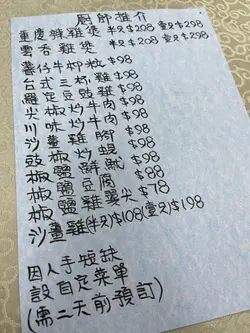 廚師推介
重慶辣雞煲 半只$208 壹只$298
雲吞雞煲 半只$208 壹只$298
薯仔牛柳粒 $98
台式三杯雞 $98
羅定豆豉雞 $98
尖椒炒牛肉 $98
川味炒牛肉 $98
沙薑炒腳 $98
豉椒炒蜆 $98
椒鹽鮮魷 $98
椒鹽豆腐 $88
椒鹽雞翼尖 $78
沙薑雞(半只)$108(壹只)$198
因人手短缺
設自定菜單
(需二天前預訂)